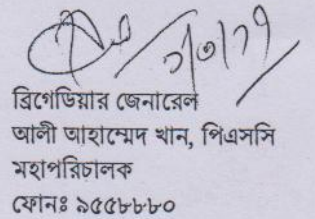 ব্রিগেডিয়ার জেনারেল
আলী আহাম্মেদ খান, পিএসসি
মহাপরিচালক
ফোনঃ ৯৫৫৮৮৮০